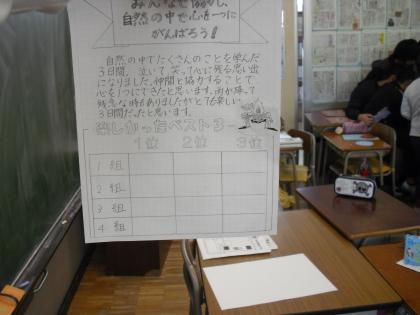 みんなで協力し、
自然の中で心を一つに
がんばろう!
自然の中でたくさんのことを学んだ
3日間。泣いて笑って心に残る思い出
になりました。仲間と協力することで、
心を1つにできたと思います。雨が降って
残念な時もありましたがとても楽しい
3日間だったと思います。
楽しかったベスト3
1位 2位 3位
1組
2組
3組
4組